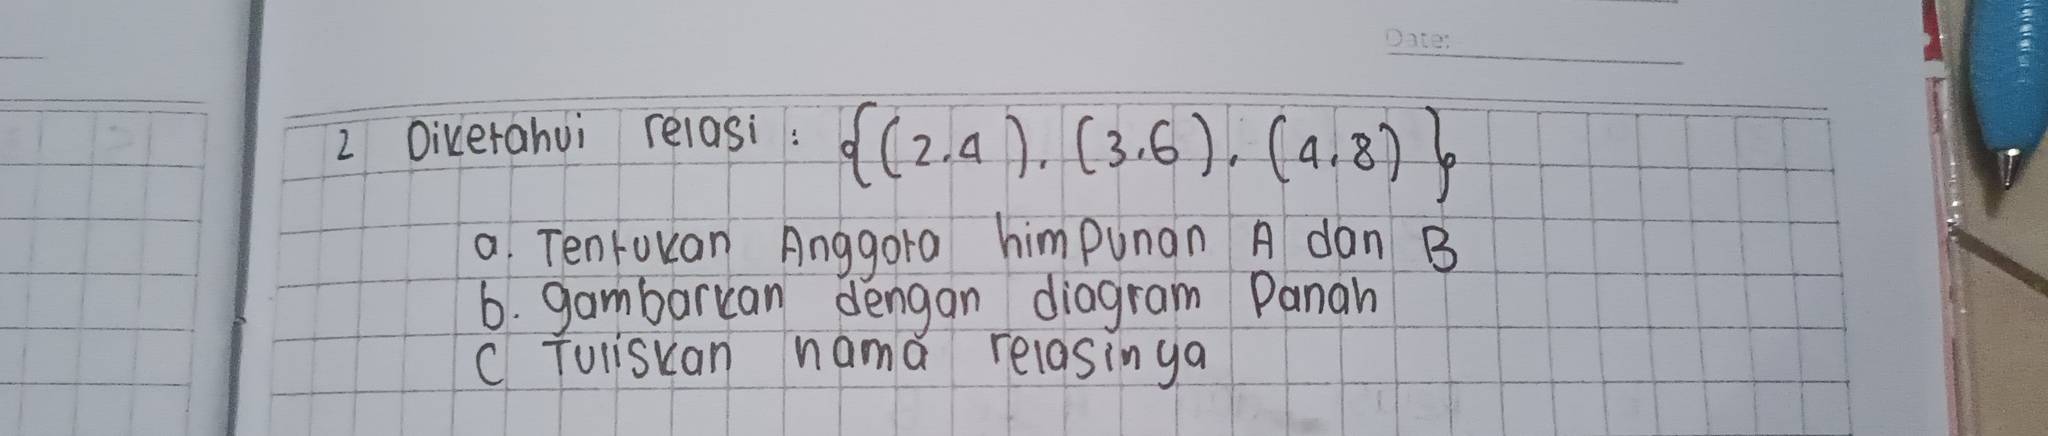 Date:
2 Diketahui relasi : {(2.4). (3.6). (4.8)}
a. Tentukan Anggota himpunan A dan B
b. gambarkan dengan diagram Panah
c Tuliskan nama relasinya